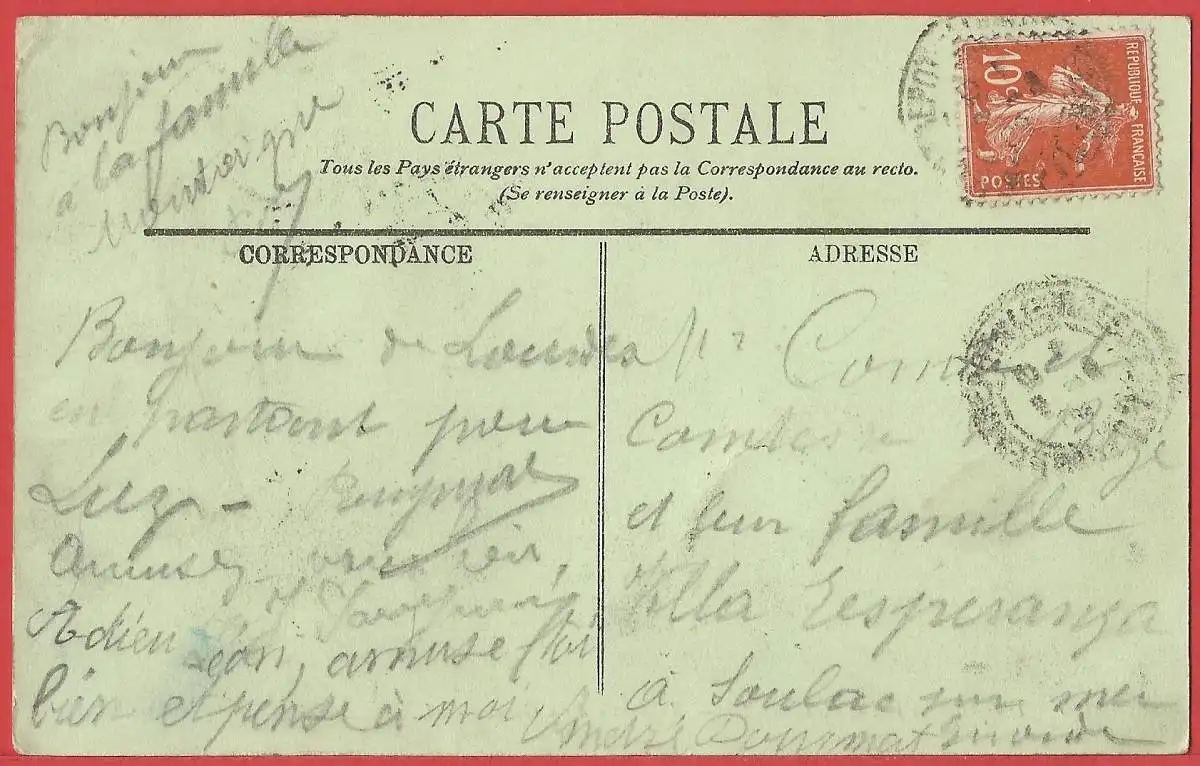 Bonjour
à la famille
CARTE POSTALE
Tous les Pays étrangers n'acceptent pas la Correspondance au recto.
(Se renseigner à la Poste).
10c
REPUBLIQUE FRANÇAISE
POSTES
CORRESPONDANCE
Bonjour de Lourdes
en partant pour
Luz -
Amusez vous bien,
Adieu amuse toi
bien et pense à moi,
André
ADRESSE
Comte
Comtesse
et leur famille
Villa Esperanza
à Soulac sur mer